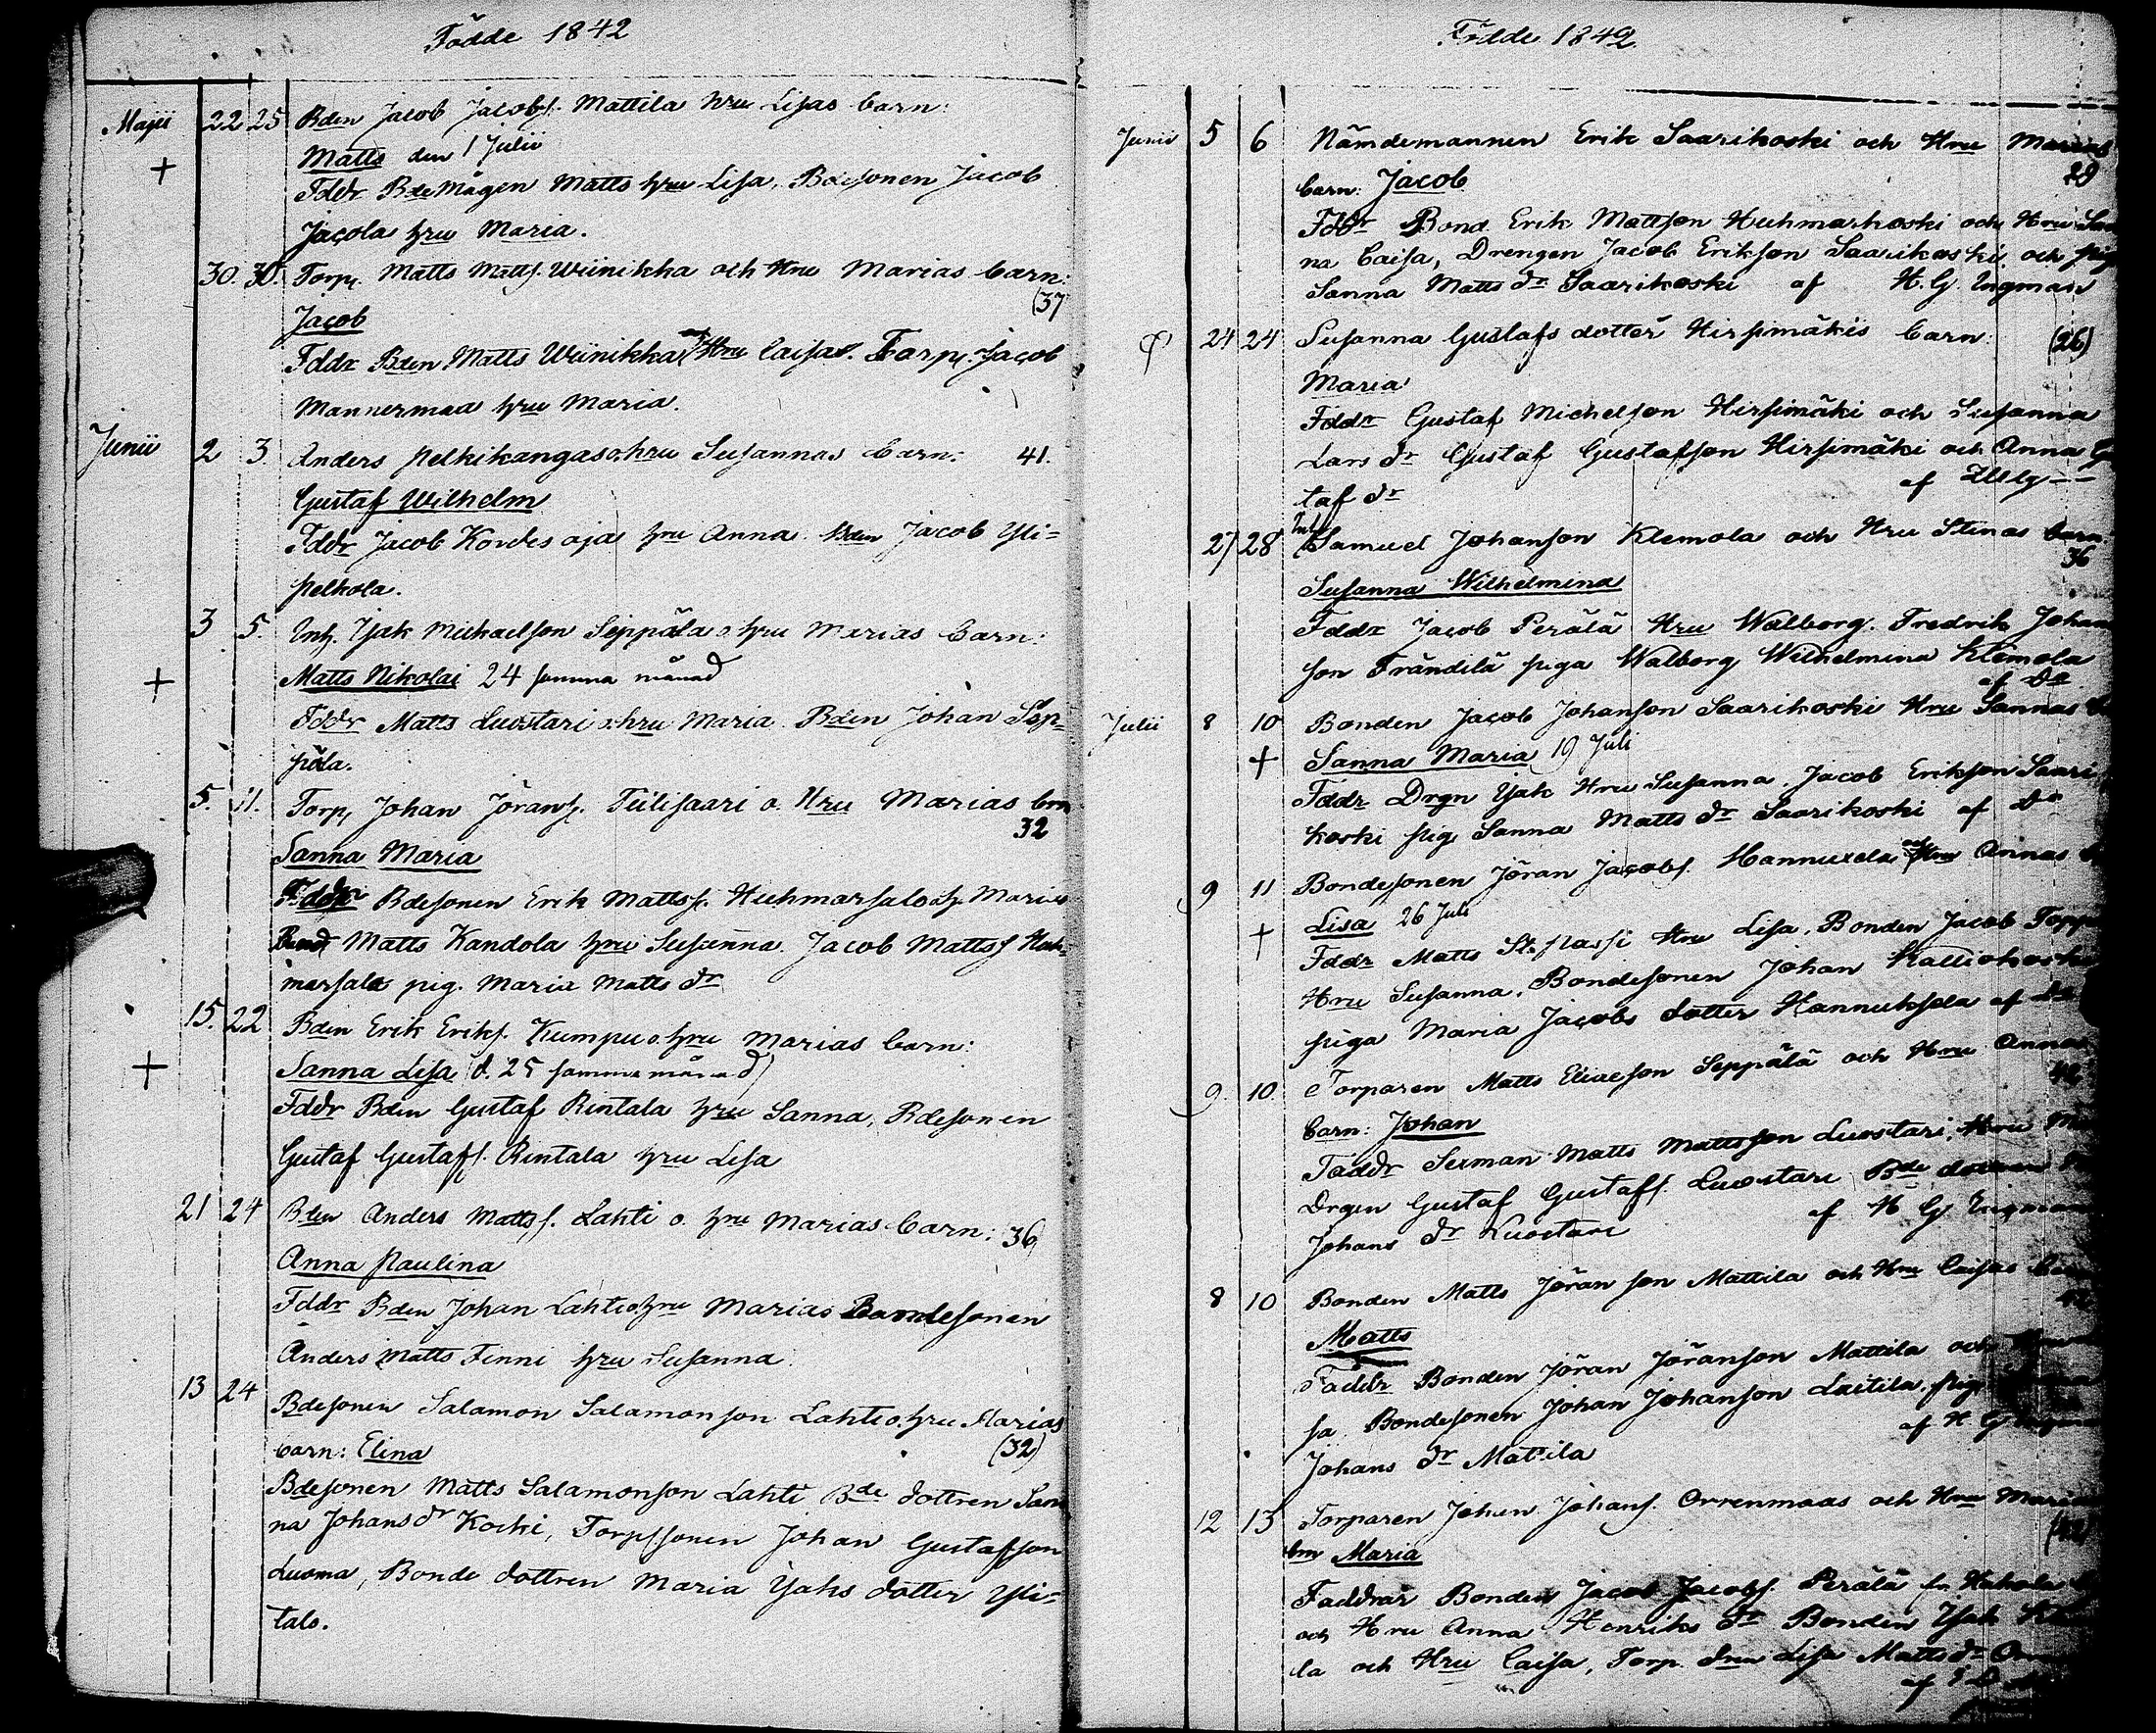 Födde 1842
Maji 22 25 Bden Jacob Jacobs. Mattila hru Lisas barn:
+ Matts den 1 Julii
Fddr Bde Mågen Matts hru Lisa, Bdesonen Jacob
Jacola hru Maria.
30. 30. Torp. Matts Matts. Wiinikka och Hru Marias barn:
(37
Jacob
Fddr Bden Matts Wiinikka och Hru Caisa. Torp. Jacob
Mannermaa hru Maria.
Junii 2 3. Anders Pelkikangas o. hru Susannas barn: 41.
Gustaf Wilhelm
Fddr Jacob Kordesoja hru Anna. Bden Jacob Yli=
pelkola.
3 5. Inh. Isak Michaelson Seppälä o. hru Marias barn:
+ Matts Nikolai 24 samma månad
Fddr Matts Luostari o. hru Maria. Bden Johan Sep=
pälä.
5. 11. Torp. Johan Jörans. Tiilisaari o. Hru Marias brn
32
Sanna Maria
Fddr Bdesonen Erik Matts. Huhmarsalo o. h. Maria
Bond Matts Kandola hru Susanna. Jacob Matts Huh=
marsala pig. Maria Matts dr
15. 22 Bden Erik Eriks. Kumpu o. hru Marias barn:
+ Sanna Lisa (d. 25 samma månad)
Fddr Bden Gustaf Rintala hru Sanna, Bdesonen
Gustaf Gustafs. Rintala hru Lisa
21 24 Bden Anders Matts. Lahti o. hru Marias barn: 36
Anna Paulina
Fddr Bden Johan Lahti o. hru Marias Bondesonen
Anders Matts Finni hru Susanna.
13 24 Bdesonen Salamon Salamonson Lahti o. hru Marias
barn: Elina (32)
Bdesonen Matts Salamonson Lahti Bde dottren San
na Johans dr Koski, Torpssonen Johan Gustafson
Luoma, Bonde dottren Maria Isaks dotter Yli=
talo.
Födde 1842
Junii 5 6 Nämdemannen Erik Saarikoski och Hru Marias
29
barn: Jacob
Fddr Bond Erik Mattson Huhmarkoski och Hru San
na Caisa, Drengen Jacob Erikson Saarikoski och pig
Sanna Matts dr Saarikoski af H. G. Ingman
24 24 Susanna Gustafs dotter Hirsimäkis barn: (26)
Maria
Fddr Gustaf Michelson Hirsimäki och Susanna
Lars dr Gustaf Gustafson Hirsimäki och Anna Gu
taf dr af
27 28 Inh. Samuel Johanson Klemola och Hru Stinas barn
36
Susanna Wilhelmina
Fddr Jacob Perälä Hru Walborg. Fredrik Johan
son Frändilä piga Walborg Wilhelmina Klemola
af Do
Julii 8 10 Bonden Jacob Johanson Saarikoski Hru Sannas
+ Sanna Maria 19 Juli
Fddr Drgn Isak Hru Susanna, Jacob Erikson Saari
koski pig Sanna Matts dr Saarikoski af Do
9 11 Bondesonen Jöran Jacobs. Hannuxela och Hru Annas
+ Lisa 26 Juli
Fddr Matts St. Passi Hru Lisa, Bonden Jacob
Hru Susanna, Bondesonen Johan Kalliokoski
piga Maria Jacobs dotter Hannuksela af Do
9. 10. Torparen Matts Eliaeson Seppälä och Hru Annas
42
barn: Johan
Faddr Sexman Matts Mattsson Luostari, Hru
Drgen Gustaf Gustafs. Luostari Bde dottren
Johans dr Luostari af H G Ingman
8 10 Bonden Matts Jöranson Mattila och Hru Caisas
42
Matts
Faddr Bonden Jöran Jöranson Mattila och
sa. Bondesonen Johan Johanson Laitila. pig
Johans dr Mattila af H G Ingman
12 13 Torparen Johan Johans. Orrenmaas och Hru Marias
(42)
brn Maria
Faddrar Bonden Jacob Jacobs. Perälä fr. Hakola
och Hru Anna Henriks dr Bonden Isak
la och Hru Caisa, Torp. dren Lisa Matts dr
af